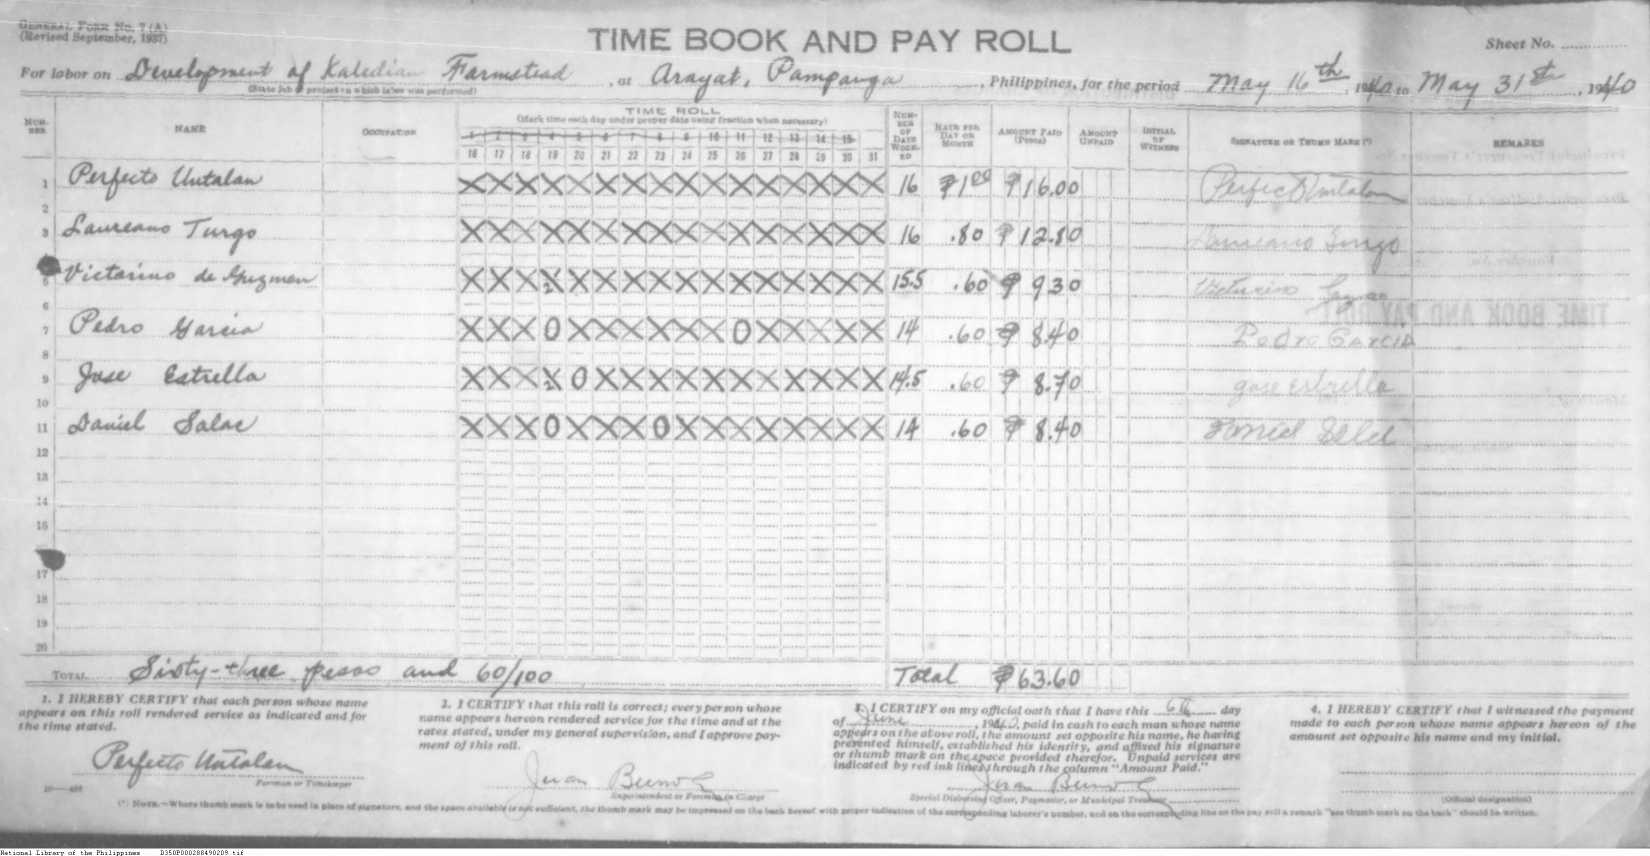 GENERAL FORM NO. 7 (A)
(Revised September, 1937)
TIME BOOK AND PAY ROLL
Sheet No. ..............
For labor on Development of Kaledian Farmstead, at Arayat, Pampanga, Philippines, for the period May 16th, 1940 to May 31st, 1940
(State job or project on which labor was performed)
NUMBER NAME OCCUPATION TIME ROLL NUMBER OF DAYS WORKED RATE PER DAY OR MONTH AMOUNT PAID (PESOS) AMOUNT UNPAID INITIAL OF WITNESS SIGNATURE OR THUMB MARK (*) REMARKS
(Mark time each day under proper date using fraction when necessary)
1 2 3 4 5 6 7 8 9 10 11 12 13 14 15
16 17 18 19 20 21 22 23 24 25 26 27 28 29 30 31
1 Perfecto Untalan X X X X X X X X X X X X X X X X 16 ₱1.00 ₱16.00 Perfecto Untalan
2
3 Laureano Turgo X X X X X X X X X X X X X X X X 16 .80 ₱12.80 Laureano Turgo
5 Victorino de Guzman X X X X X X X X X X X X X X X 15.5 .60 ₱ 9.30 Victorino
6
7 Pedro Garcia X X X O X X X X X X O X X X X X 14 .60 ₱ 8.40 Pedro GARCIA
8
9 Jose Estrella X X X O X X X X X X X X X X X 14.5 .60 ₱ 8.70 Jose Estrella
10
11 Daniel Salac X X X O X X X O X X X X X X X X 14 .60 ₱ 8.40 Daniel
12
13
14
15
16
17
18
19
20
TOTAL Sixty-three pesos and 60/100 Total ₱63.60
1. I HEREBY CERTIFY that each person whose name
appears on this roll rendered service as indicated and for
the time stated.
Perfecto Untalan
Foreman or Timekeeper
2. I CERTIFY that this roll is correct; every person whose
name appears hereon rendered service for the time and at the
rates stated, under my general supervision, and I approve pay-
ment of this roll.
Juan
Superintendent or Foreman in Charge
3. I CERTIFY on my official oath that I have this 6th day
of June, 1940, paid in cash to each man whose name
appears on the above roll, the amount set opposite his name, he having
presented himself, established his identity, and affixed his signature
or thumb mark on the space provided therefor. Unpaid services are
indicated by red ink lines through the column "Amount Paid."
Juan
Special Disbursing Officer, Paymaster, or Municipal Treasurer
4. I HEREBY CERTIFY that I witnessed the payment
made to each person whose name appears hereon of the
amount set opposite his name and my initial.
(Official designation)
(*) NOTE.—Where thumb mark is to be used in place of signature, and the space available is not sufficient, the thumb mark may be impressed on the back hereof with proper indication of the corresponding laborer's number, and on the corresponding line on the pay roll a remark "see thumb mark on the back" should be written.
National Library of the Philippines D350P000288490209.tif